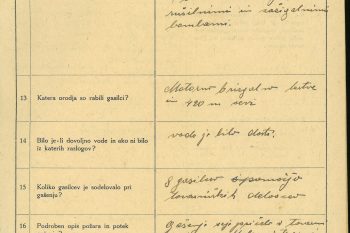 rušilnimi in zažigalnimi
bombami.
13 Katera orodja so rabili gasilci?
Motorno brizgalno
in 420 m cevi
14 Bilo je-li dovoljno vode in ako ni bilo
iz katerih razlogov?
vode je bilo dosti.
15 Koliko gasilcev je sodelovalo pri
gašenju?
8 gasilcev s pomočjo
tovarniških delavcev
16 Podroben opis požara in potek
Gašenje se je pričelo s